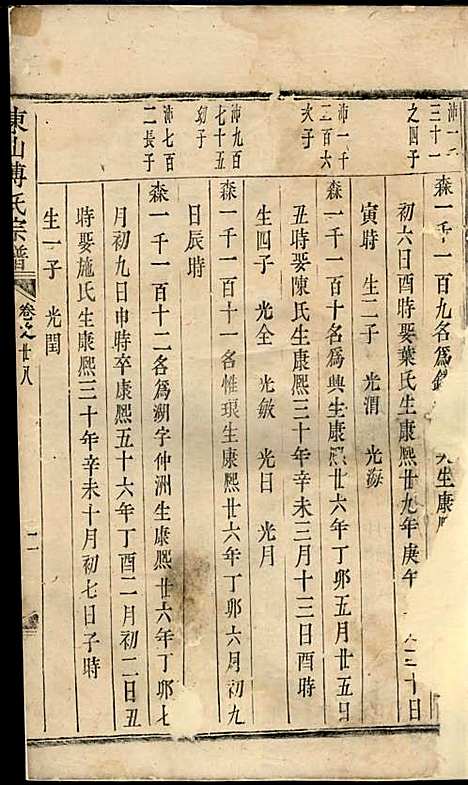 沛一千
三十一
之四子
森一千一百九名為
生康
初六日酉時娶葉氏生康熙廿九年庚午
三十日
寅時 生二子 光渭 光海
沛一千
二百六
次子
森一千一百十名為興生康熙廿六年丁卯五月廿五日
丑時娶陳氏生康熙三十年辛未三月十三日酉時
生四子 光全 光敏 光日 光月
沛九百
七十五
幼子
森一千一百十一名惟琅生康熙廿六年丁卯六月初九
日辰時
沛七百
二長子
森一千一百十二名為湖字仲洲生康熙廿六年丁卯七
月初九日申時卒康熙五十六年丁酉二月初二日丑
時娶施氏生康熙三十年辛未十月初七日子時
生一子 光閏
東山傅氏宗譜
卷之廿八
二